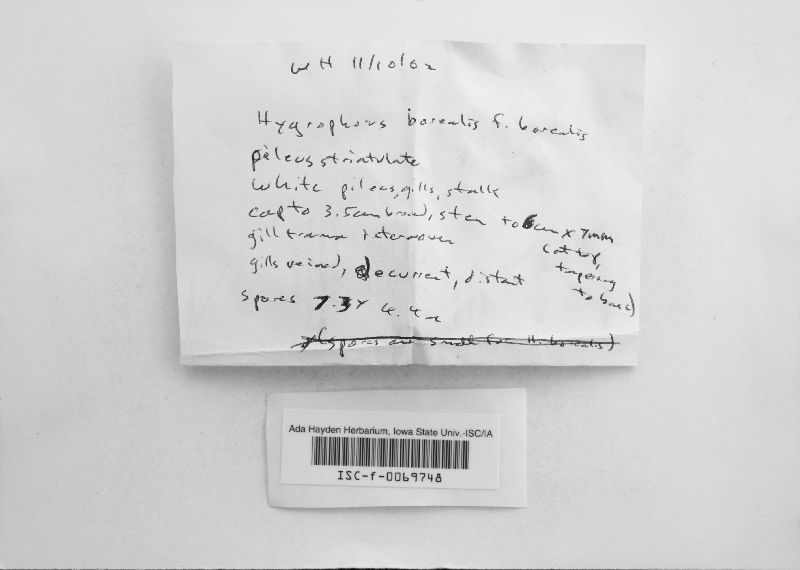 WH 11/10/02
Hygrophorus borealis f. borealis
pileus striatulate
White pileus, gills, stalk
cap to 3.5cm broad, stem to 6cm x 7mm
(at top, tapering to base)
gill trama interwoven
gills veined, decurrent, distant
spores 7.3 x 4.4 μ
(spores are small for H. borealis)
Ada Hayden Herbarium, Iowa State Univ.-ISC/IA
ISC-f-0069748